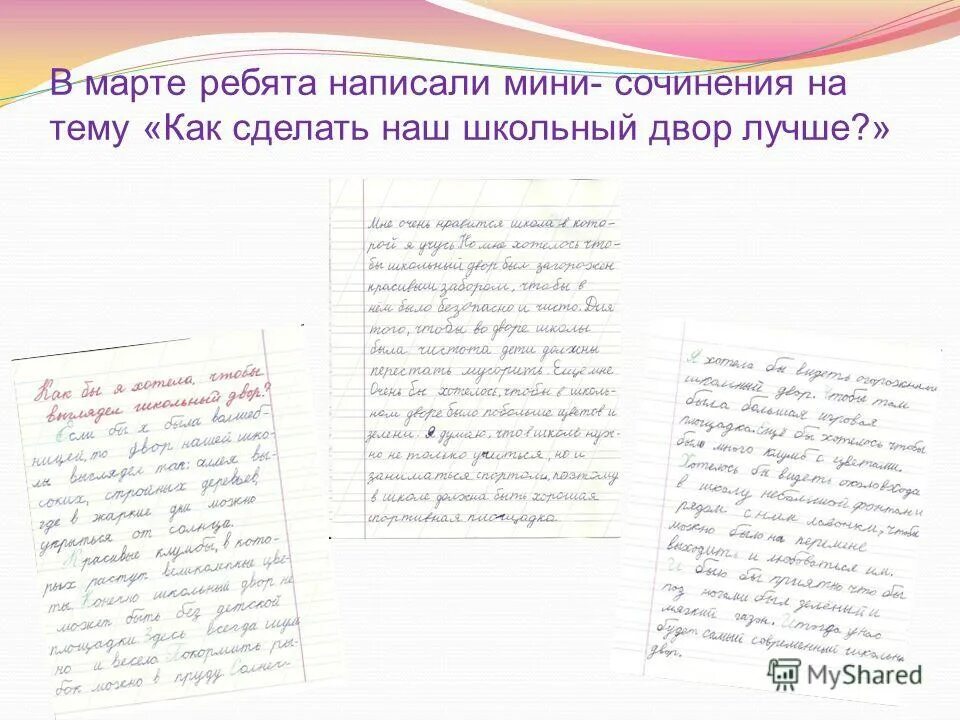 В марте ребята написали мини- сочинения на
тему «Как сделать наш школьный двор лучше?»
Как бы я хотела, чтобы
выглядел школьный двор?
Если бы х была волшеб-
ницей, то двор нашей шко-
лы выглядел так: аллея вы-
соких, стройных деревьев,
где в жаркие дни можно
укрыться от солнца.
Красивые клумбы, в кото-
рых растут великолепные цве-
ты. Конечно школьный двор не
может быть без детской
площадки. Здесь всегда шум
но и весело. Покормить ры-
бок можно в пруду. Солнеч-
Мне очень нравится школа в кото-
рой я учусь. Но мне хотелось что-
бы школьный двор был загорожен
красивым забором, чтобы в
нём было безопасно и чисто. Для
того, чтобы во дворе школы
была чистота дети должны
перестать мусорить. Ещё мне
Очень бы хотелось, чтобы в школь-
ном дворе было побольше цветов и
зелени. Я думаю, что в школе нуж-
но не только учиться, но и
заниматься спортом, поэтому
в школе должна быть хорошая
спортивная площадка.
Я хотела бы видеть огороженный
школьный двор. Чтобы там
была большая игровая
площадка. Ещё бы хотелось чтобы
было много клумб с цветами.
Хотелось бы видеть около входа
в школу небольшой фонтан и
рядом с ним лавочки, чтобы
можно было на перемене
выходить и любоваться им.
И было бы приятно что бы
под ногами был зеленый и
мягкий газон. И тогда у нас
будет самый современный школьный
двор.
MyShared